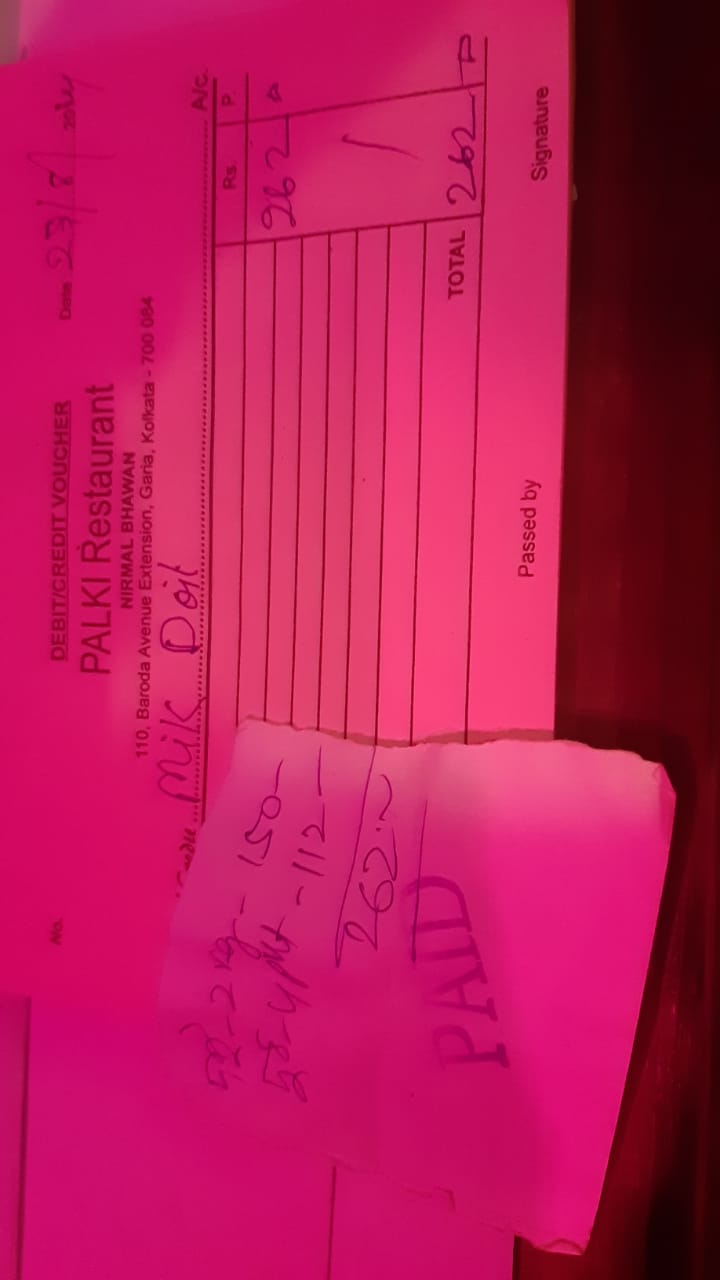 DEBIT/CREDIT VOUCHER
No.
Date 23/8/2024
PALKI Restaurant
NIRMAL BHAWAN
110, Baroda Avenue Extension, Garia, Kolkata - 700 084
Milk Doit
A/c.
Rs. P.
262
TOTAL 262
Passed by
Signature
দই - 2 kg - 150 -
দুধ - 4 pkt - 112 -
262.~
PAID